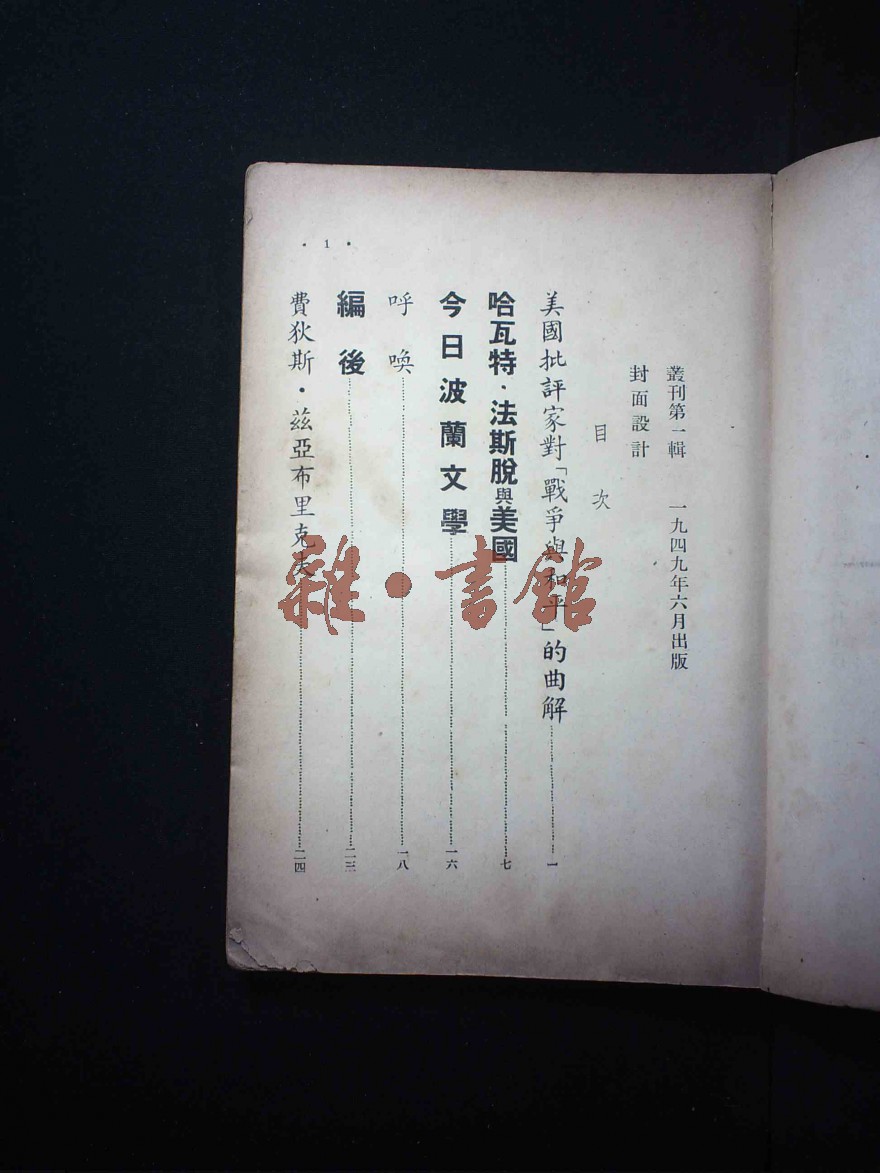 叢刊第一輯　一九四九年六月出版
封面設計
目次
美國批評家對「戰爭與和平」的曲解…………一
哈瓦特·法斯脫與美國…………七
今日波蘭文學…………一六
呼喚…………一八
編後…………二三
費狄斯·茲亞布里克夫…………二四
·1·
雜·書館